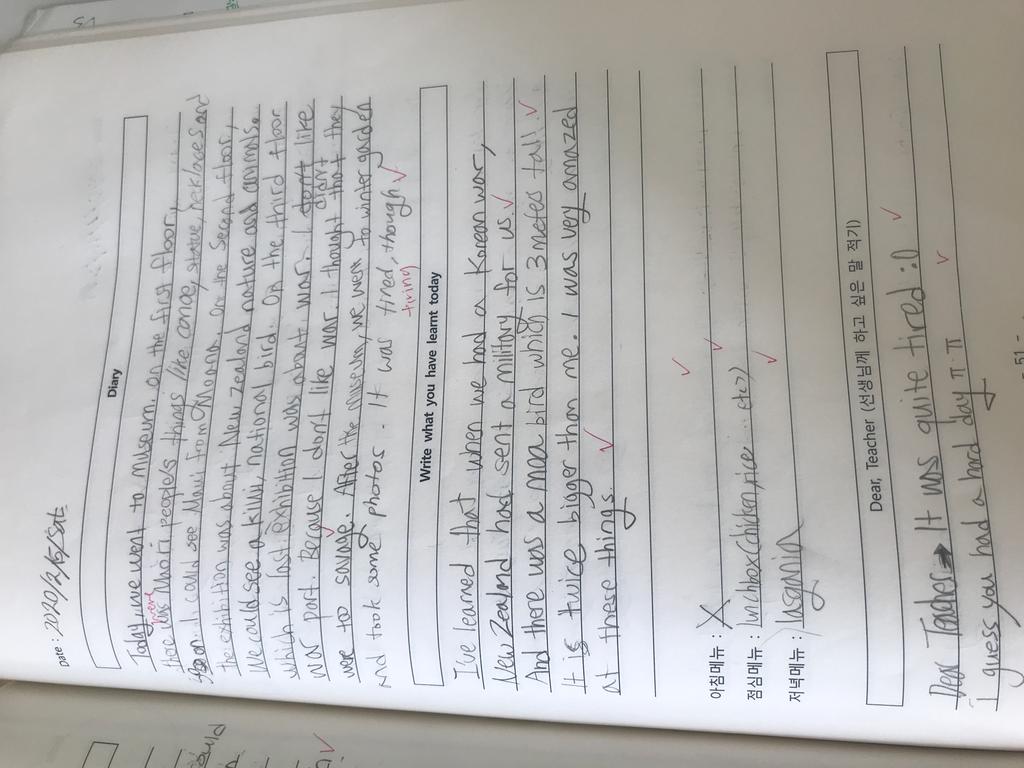 Date : 2020/2/15/Sat
Diary
Today, we went to museum. On the first floor,
there was were Maori people's things like canoe, statue, necklaces and
so on. I could see Maui from Moana. On the second floor,
the exhibition was about New Zealand nature and animals.
We could see a kiwi, national bird. On the third floor
which is last exhibition was about war. I didn't like
war part. Because I don't like war. I thought that they
were to savage. After the museum, we went to winter garden
and took some photos. It was tired, though
tiring
Write what you have learnt today
I've learned that when we had a Korean war,
New Zealand had sent a military for us.
And there was a moa bird which is 3 metes tall.
It is twice bigger than me. I was very amazed
at these things.
아침메뉴 : X
점심메뉴 : lunchbox(chicken, rice ... etc?)
저녁메뉴 : lasgania
Dear, Teacher (선생님께 하고 싶은 말 적기)
Dear Teacher → It was quite tired :0
I guess you had a hard day ㅠ.ㅠ
- 51 -